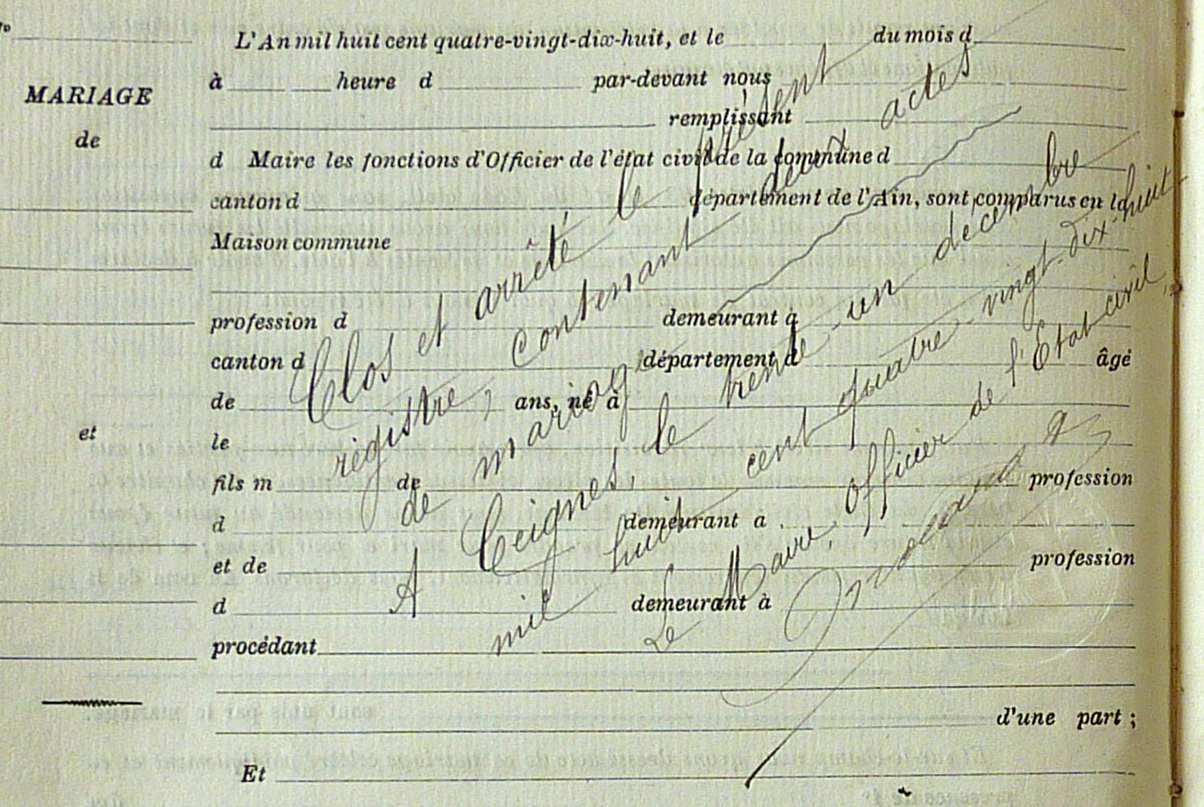 MARIAGE
de
et
L'An mil huit cent quatre-vingt-dix-huit, et le du mois d
à heure d par-devant nous
remplissant
d Maire les fonctions d'Officier de l'état civil de la commune d
canton d département de l'Ain, sont comparus en la
Maison commune
profession d demeurant à
canton d département d âgé
de ans, né à
le
fils m de profession
d demeurant a
et de profession
d demeurant à
procédant
d'une part ;
Et
Clos et arrêté le présent
régistre, contenant deux actes
de mariage
A Ceignes, le trente-un décembre
mil huit cent quatre-vingt-dix-huit
Le Maire, Officier de l'Etat civil,